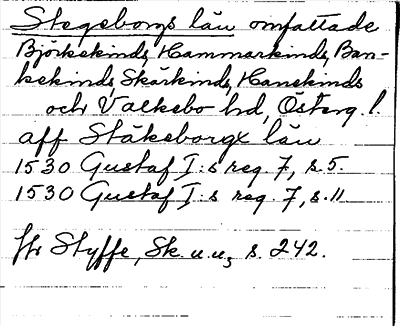 Stegeborgs län omfattade
Björkekinds, Hammarkinds, Ban-
kekinds, Skärkinds, Hanekinds
och Valkebo hd, Österg. l.
aff Stäkeborgx län
1530 Gustaf I:s reg. 7, s. 5.
1530 Gustaf I:s reg. 7, s. 11
Styffe, Sk. u. u., s. 242.